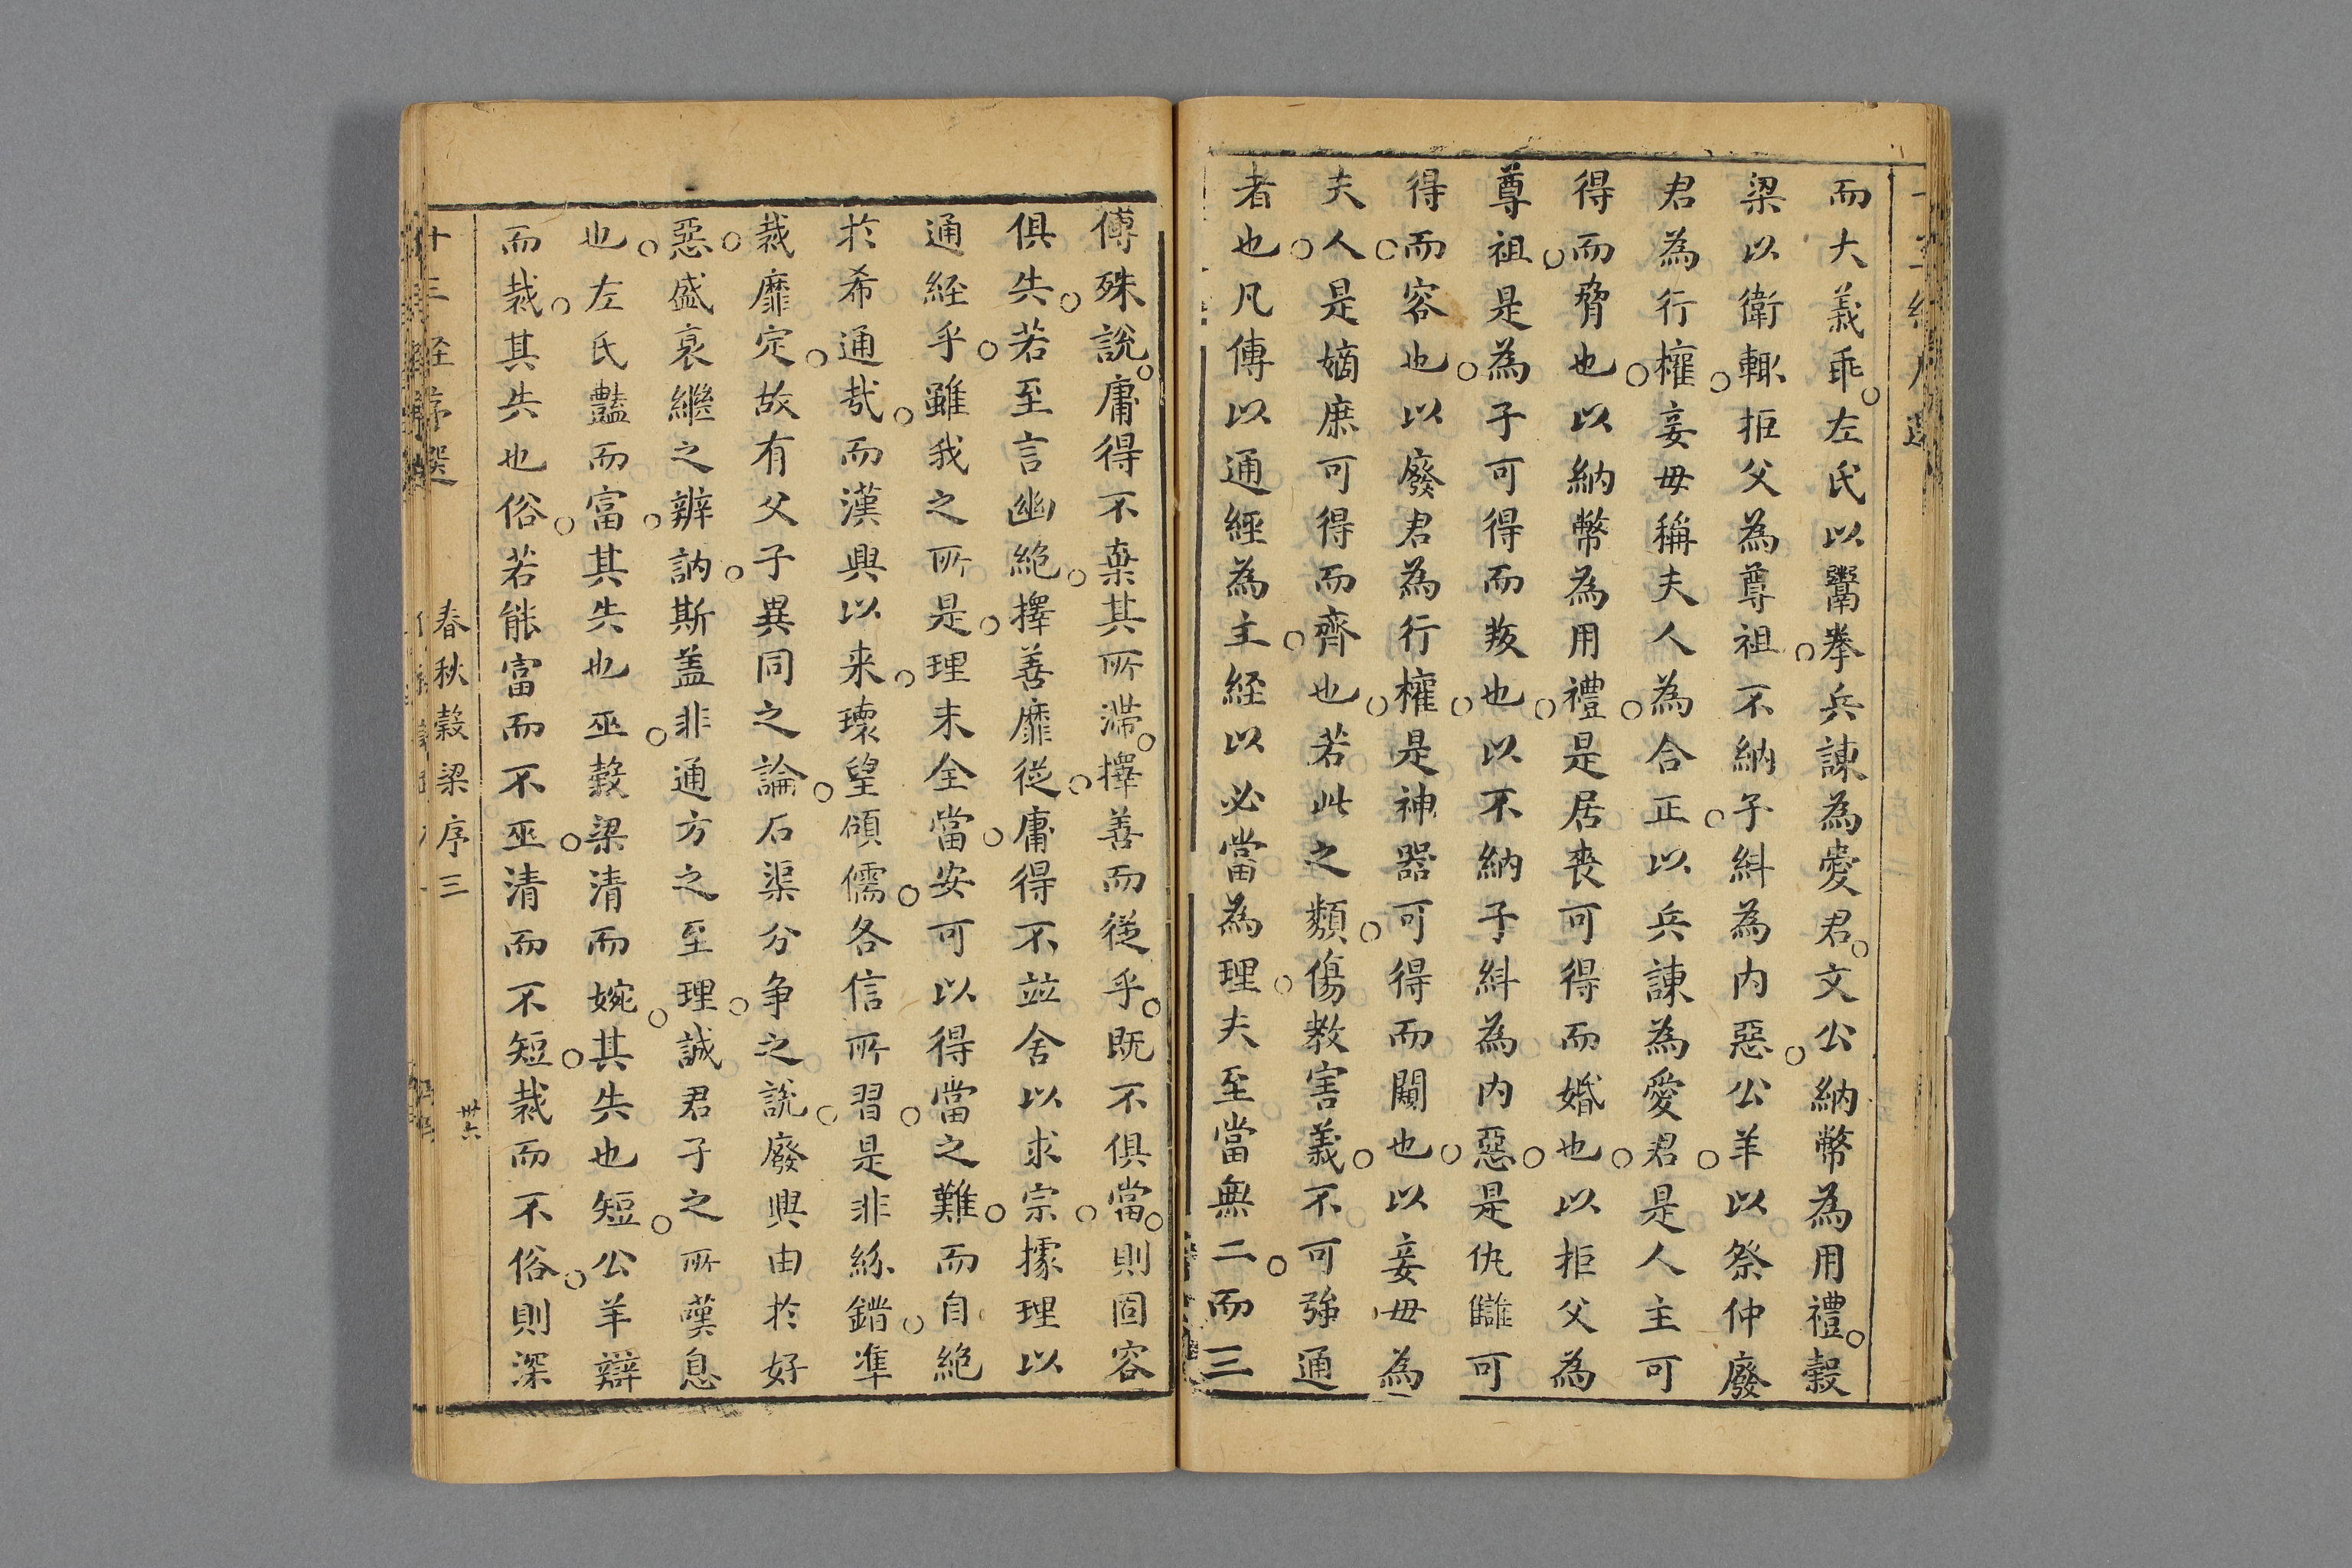 而大義乖左氏以鬻拳兵諌為愛君文公納幣為用禮穀
梁以衛輒拒父為尊祖不納子糾為内惡公羊以祭仲廢
君為行權妾毋稱夫人為合正以兵諌為愛君是人主可
得而脅也以納幣為用禮是居喪可得而婚也以拒父為
尊祖是為子可得而叛也以不納子糾為内惡是仇讎可
得而容也以廢君為行權是神器可得而闚也以妾毋為
夫人是嫡庶可得而齊也若此之類傷教害義不可強通
者也凡傳以通經為主經以必當為理夫至當無二而三
傳殊說庸得不棄其所滯擇善而從乎既不俱當則固容
俱失若至言幽絶擇善靡從庸得不並舍以求宗據理以
通経乎雖我之所是理未全當安可以得當之難而自絶
於希通哉而漢興以来瓌望頌儒各信所習是非紛錯準
裁靡定故有父子異同之論石渠分争之說廢興由於好
惡盛衰繼之辨訥斯盖非通方之至理誠君子之所嘆息
也左氏豔而富其失也巫穀梁清而婉其失也短公羊辯
而裁其失也俗若能富而不巫清而不短裁而不俗則深
十三経序選 春秋穀梁序三 卅六